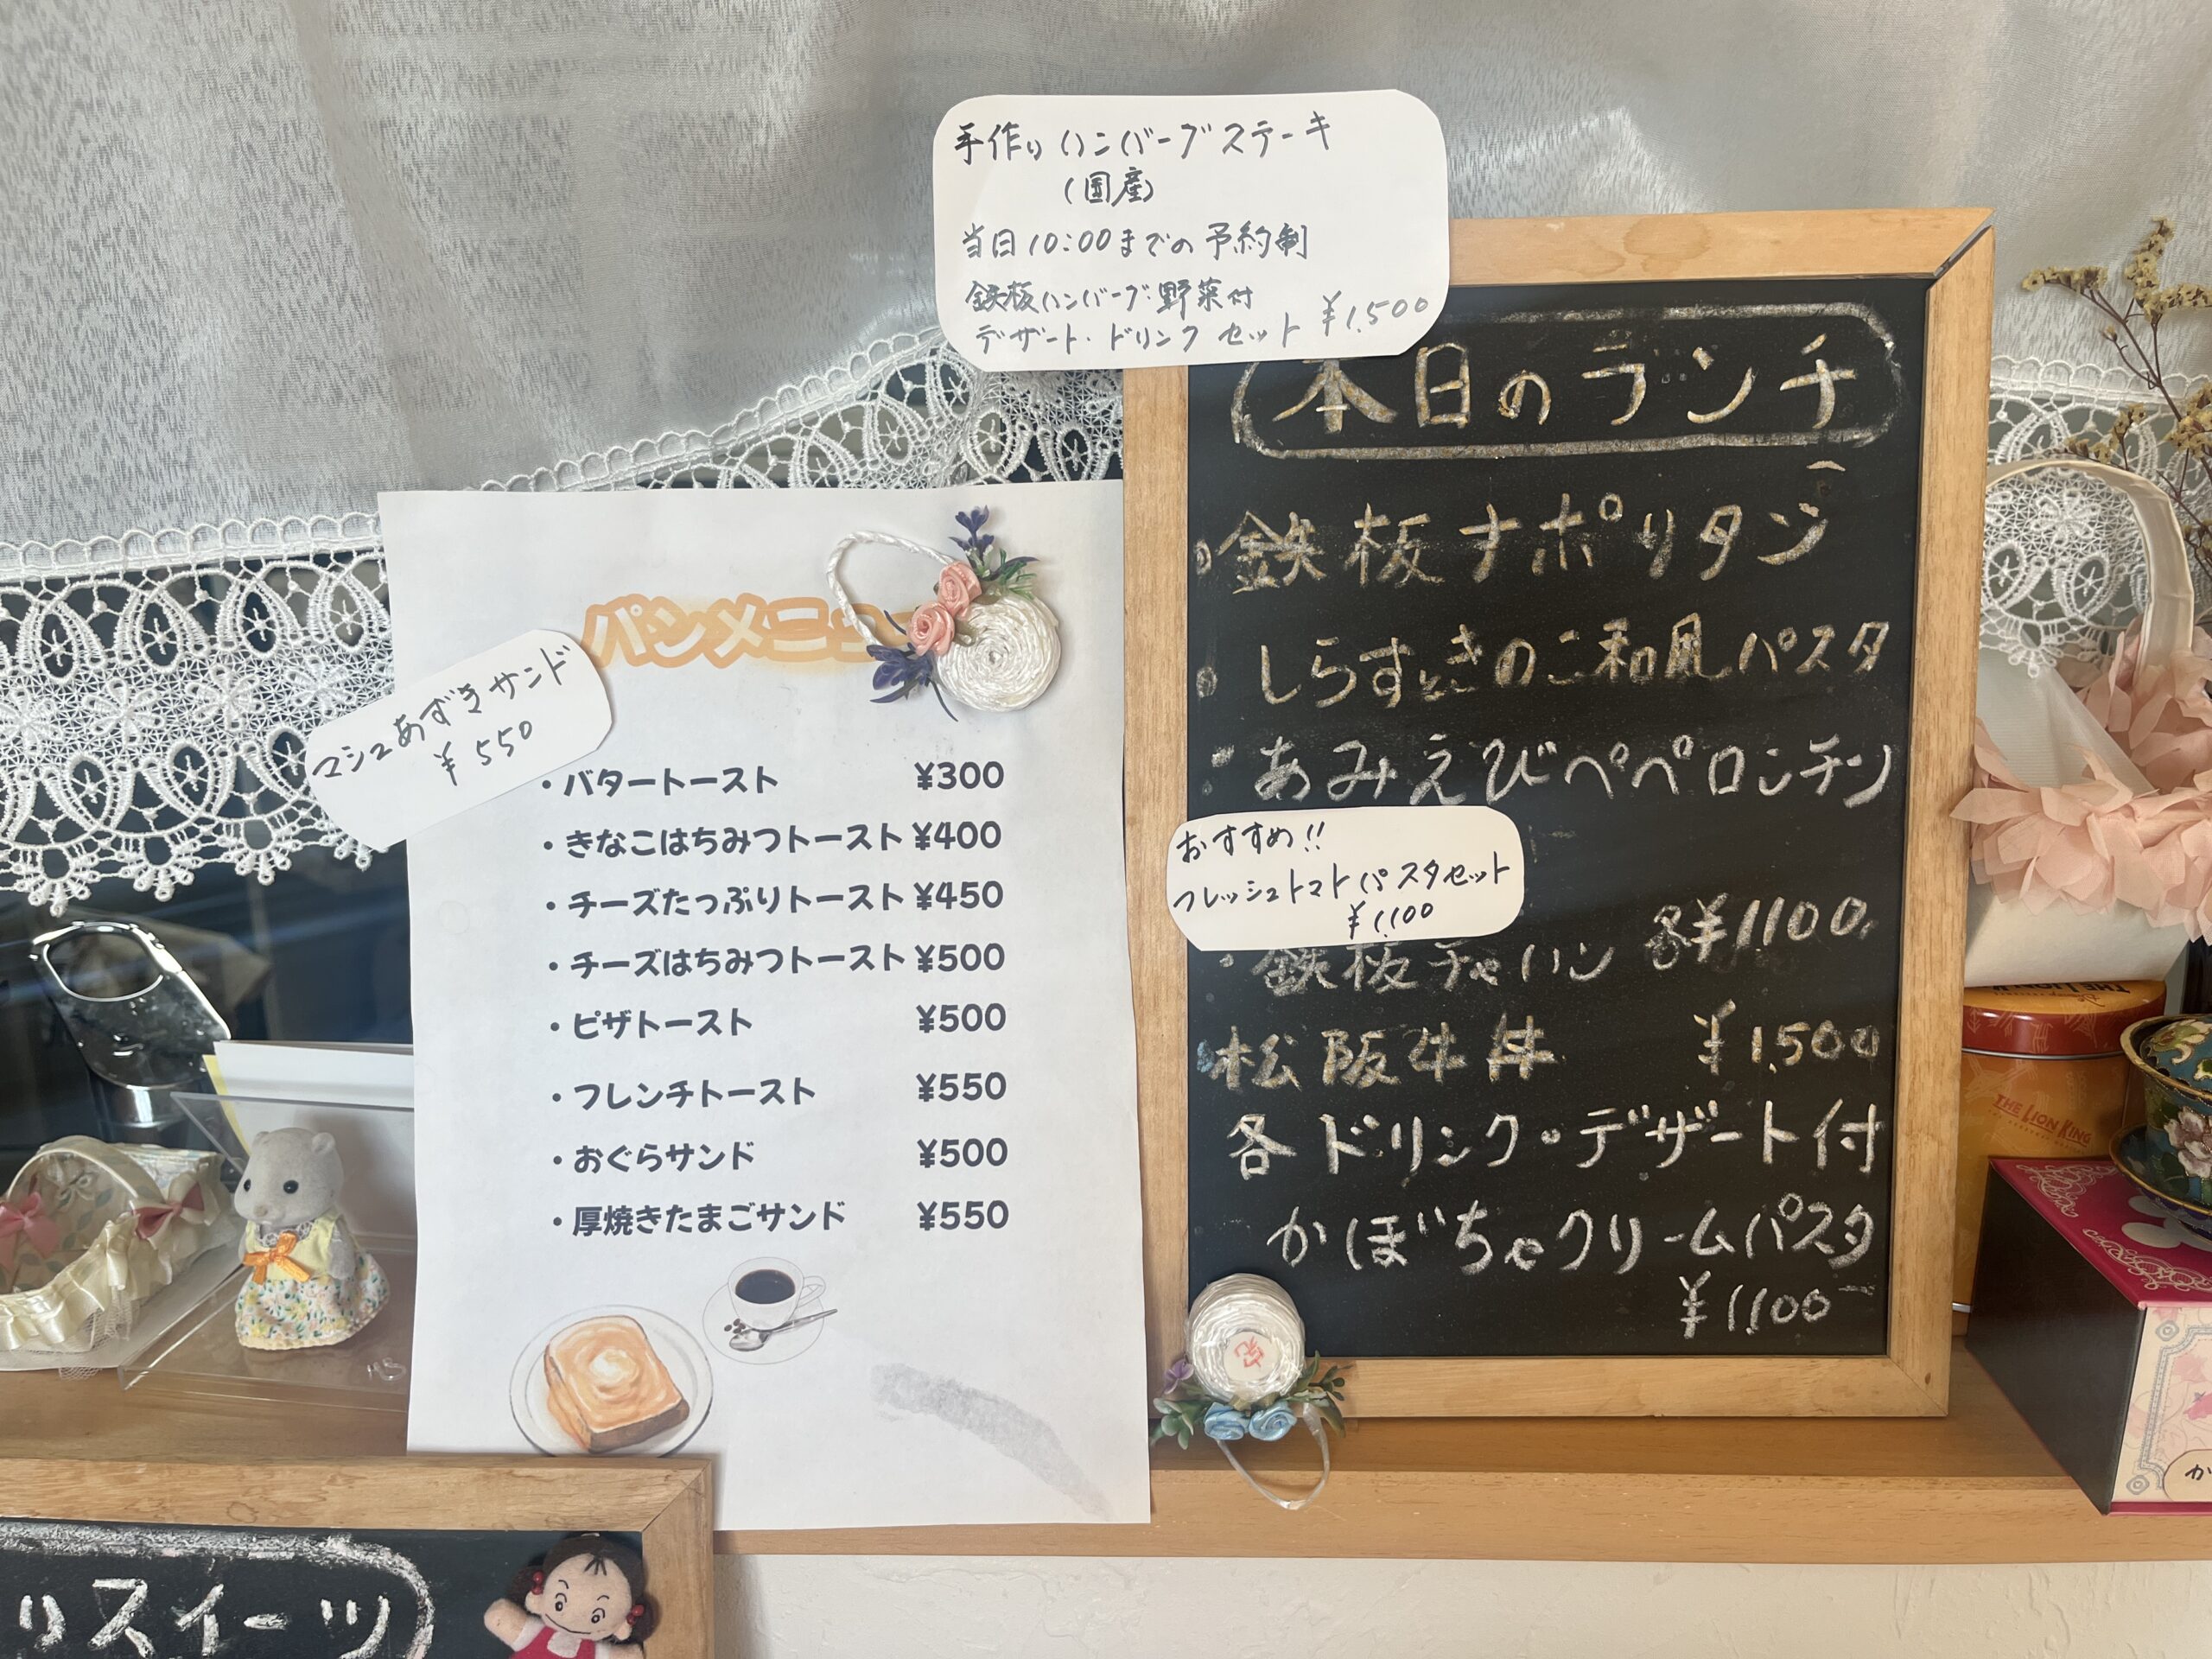 手作りハンバーグステーキ
(国産)
当日10:00までの予約制
鉄板ハンバーグ・野菜付
デザート・ドリンクセット ¥1,500
パンメニュー
マシュあずきサンド
¥550
・バタートースト ¥300
・きなこはちみつトースト ¥400
・チーズたっぷりトースト ¥450
・チーズはちみつトースト ¥500
・ピザトースト ¥500
・フレンチトースト ¥550
・おぐらサンド ¥500
・厚焼きたまごサンド ¥550
本日のランチ
・鉄板ナポリタン
・しらすときのこ和風パスタ
・あみえびペペロンチン
おすすめ!!
フレッシュトマトパスタセット
¥1,100
・鉄板チャーハン 各¥1100
・松阪牛丼 ¥1,500
各ドリンク・デザート付
かぼちゃクリームパスタ
¥1,100
りスイーツ
THE LION KING
か